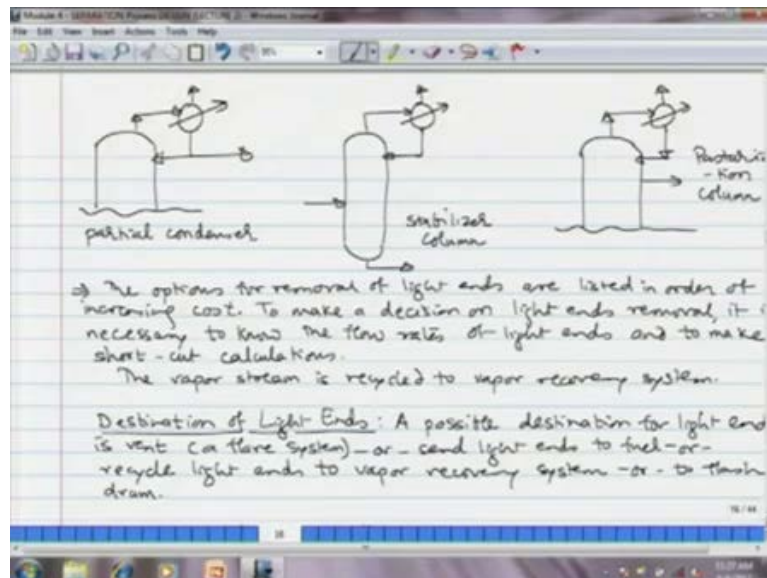 Module 4 - SEPARATION Process DESIGN (LECTURE 2) - Windows Journal
File Edit View Insert Actions Tools Help
partial condenser
stabilizer
column
Pasteriza
-tion
column
⇒ The options for removal of light ends are listed in order of
increasing cost. To make a decision on light ends removal, it i
necessary to know the flow rates of light ends and to make
short-cut calculations.
The vapor stream is recycled to vapor recovery system.
Destination of Light Ends: A possible destination for light end
is vent (a flare system) -or- send light ends to fuel -or-
recycle light ends to vapor recovery system -or- to flash
drum.
16/44
16